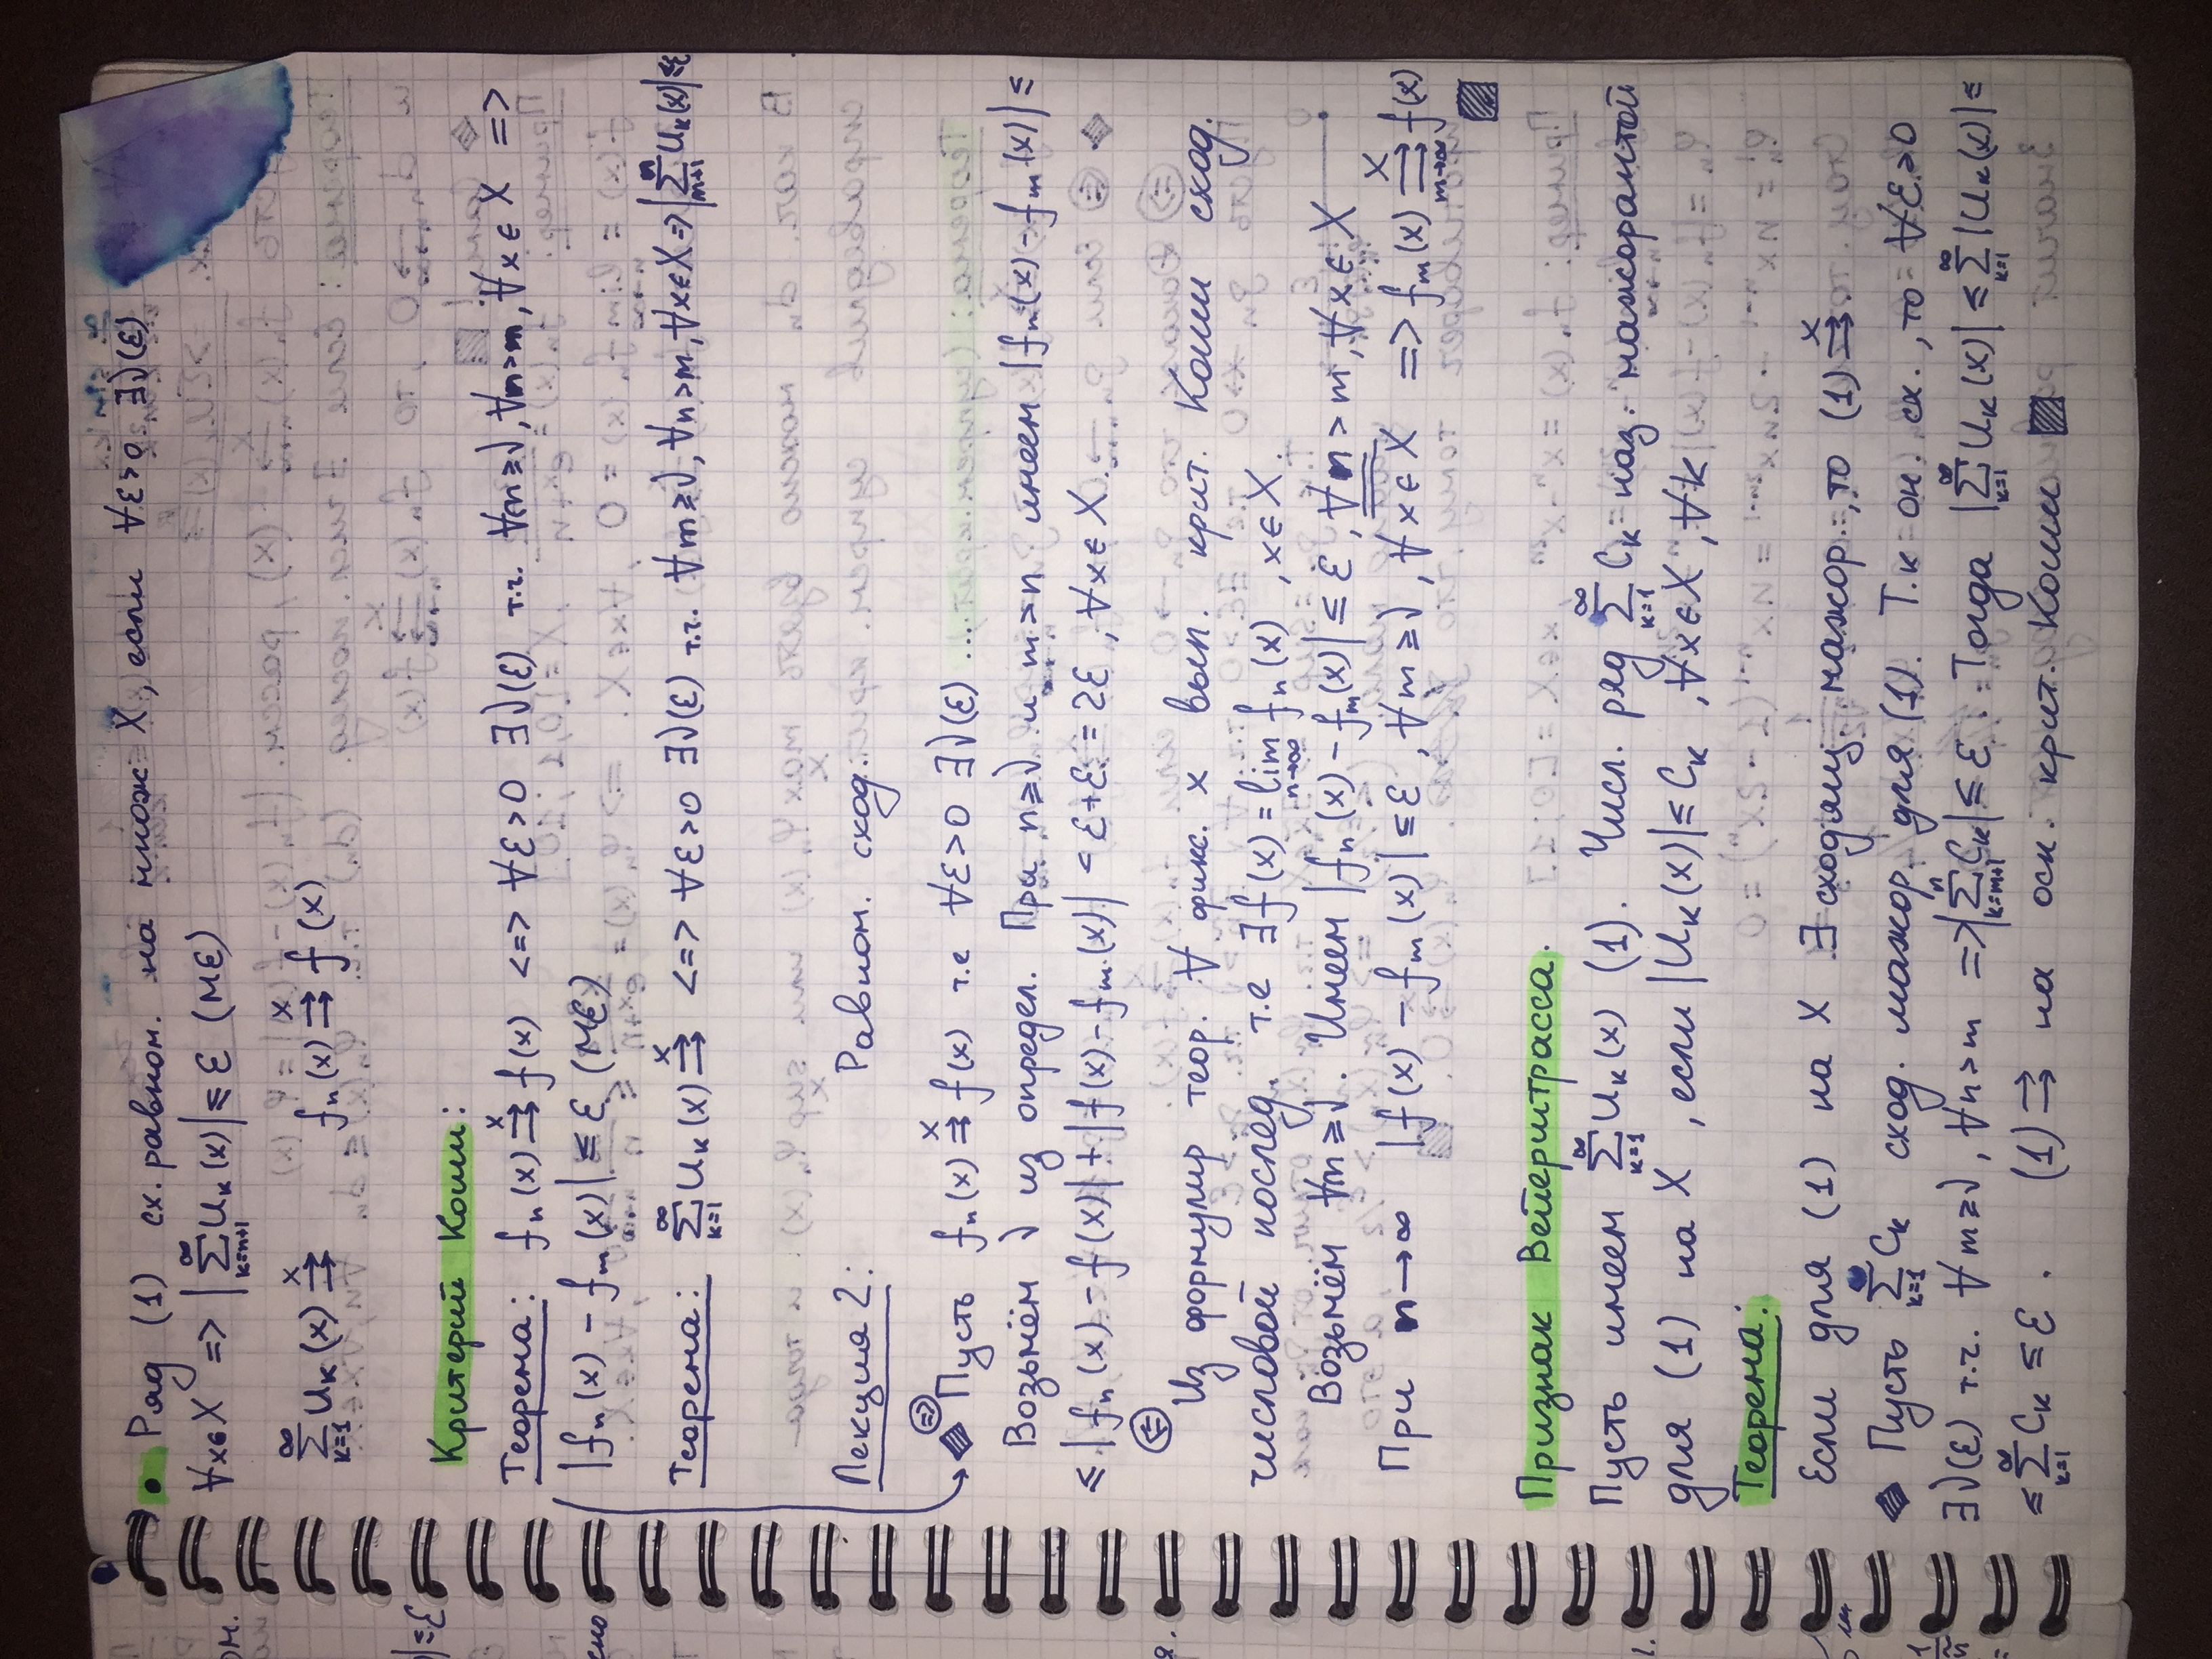 • Ряд (1) сх. равном. на множ X, если ∀ε>0 ∃√(ε)
∀x∈X => |∑_{k=n+1}^{∞} U_k(x)| ≤ ε (Mε)
∑_{k=1}^{∞} U_k(x) ⇉^X    f_n(x) ⇉^X f(x)
Критерий Коши:
Теорема: f_n(x) ⇉^X f(x) <=> ∀ε>0 ∃√(ε) т.ч. ∀n≥√, ∀m>n, ∀x∈X =>
|f_n(x) - f_m(x)| ≤ ε (Mε)
Теорема: ∑_{k=1}^{∞} U_k(x) ⇉^X <=> ∀ε>0 ∃√(ε) т.ч. ∀m≥√, ∀n>m, ∀x∈X => |∑_{m+1}^{n} U_k(x)| ≤ε
Лекция 2: Равном. сход.
(=>) Пусть f_n(x) ⇉^X f(x) т.е ∀ε>0 ∃√(ε) ...
Возьмём √ из определ. При n≥√ и m>n имеем |f_n(x) - f_m(x)| ≤
≤ |f_n(x) - f(x)| + |f(x) - f_m(x)| = ε+ε = 2ε, ∀x∈X.
(<=)
Из формулир теор. ∀ фикс. x вып. крит. Коши сход.
числовой послед. т.е ∃f(x) = lim_{n→∞} f_n(x), x∈X.
Возьмём ∀m≥√. Имеем |f_n(x) - f_m(x)| ≤ ε, ∀n > m, ∀x∈X
При n→∞ |f(x) - f_m(x)| ≤ε, ∀m≥√, ∀x∈X => f_m(x) ⇉^X_{m→∞} f(x)
Признак Вейерштрасса.
Пусть имеем ∑_{k=1}^{∞} U_k(x) (1). Числ. ряд ∑_{k=1}^{∞} C_k наз. мажорантой
для (1) на X, если |U_k(x)| ≤ C_k, ∀x∈X, ∀k
Теорема:
Если для (1) на X ∃ сходящ. мажор., то (1) ⇉^X.
Пусть ∑_{k=1} C_k сход. мажор. для (1). Т.к он. сх., то ∀ε>0
∃√(ε) т.ч. ∀m≥√, ∀n>m => |∑_{k=m+1}^{n} C_k| ≤ ε. Тогда |∑_{k=1}^{∞} U_k(x)| ≤ ∑_{k=1}^{∞} |U_k(x)| ≤
≤ ∑_{k=1}^{∞} C_k ≤ ε. (1) ⇉ на осн. крит. Коши